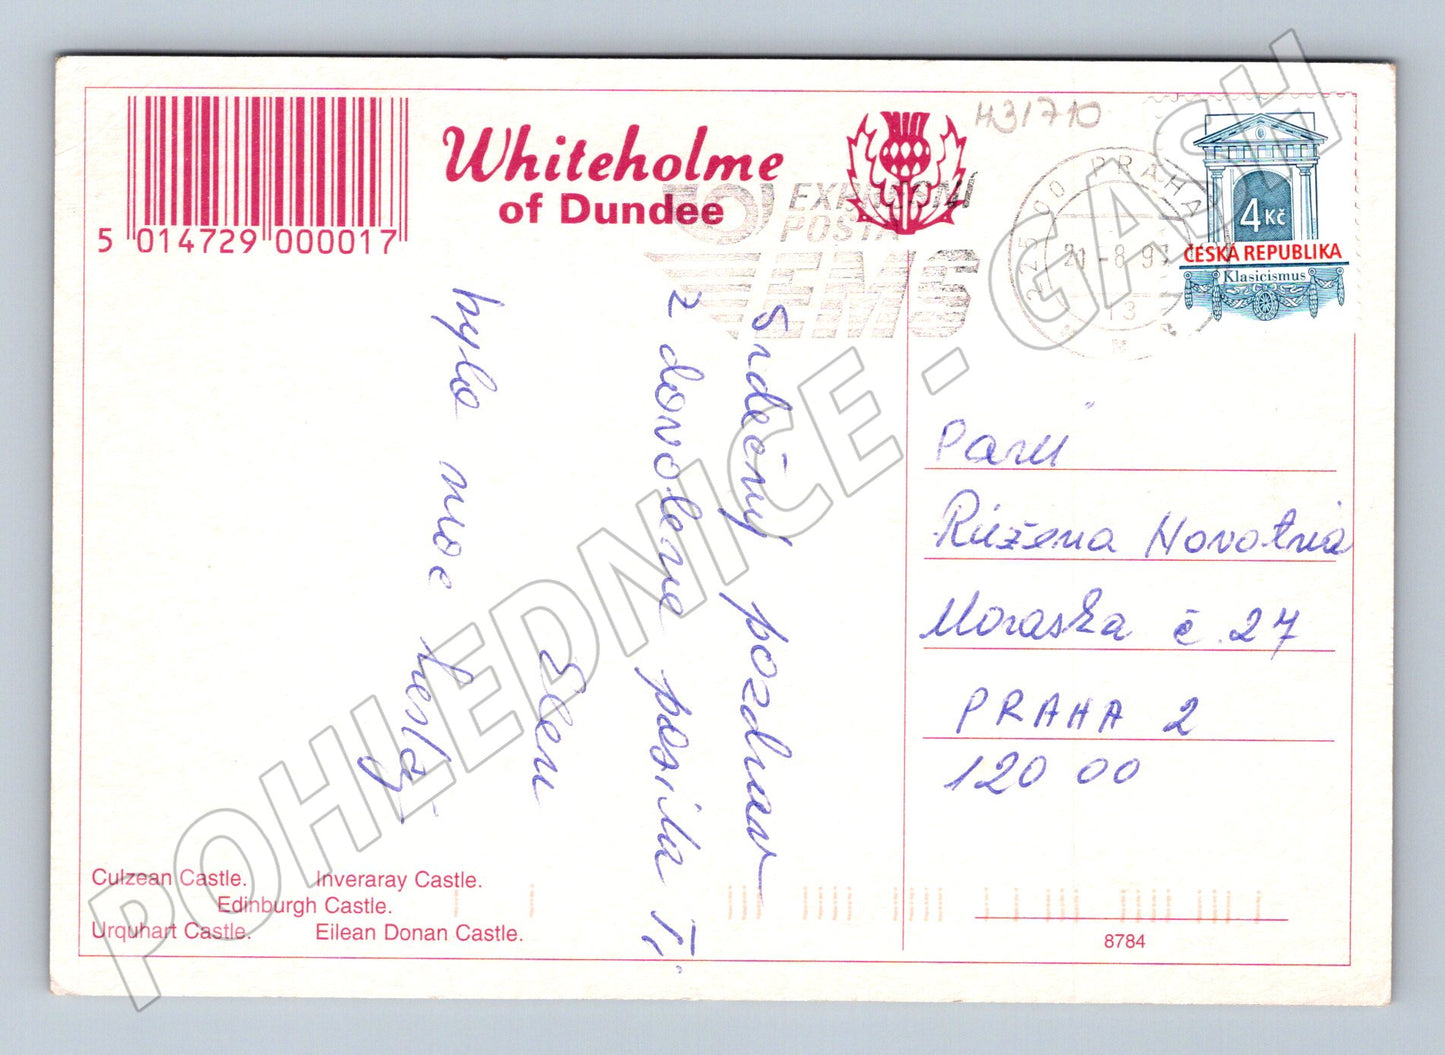 5 014729 000017
Whiteholme
of Dundee
431710
EXPRESNÍ
POŠTA
EMS
225 00 PRAHA
21-8.97
13
4 Kč
ČESKÁ REPUBLIKA
Klasicismus
Srdečný pozdrav
z dovolené posílá Ti
Elen
bylo moc hezky
Paní
Růžena Novotná
Moravská č. 27
PRAHA 2
120 00
Culzean Castle. Inveraray Castle.
Edinburgh Castle.
Urquhart Castle. Eilean Donan Castle.
8784
POHLEDNICE - GASH